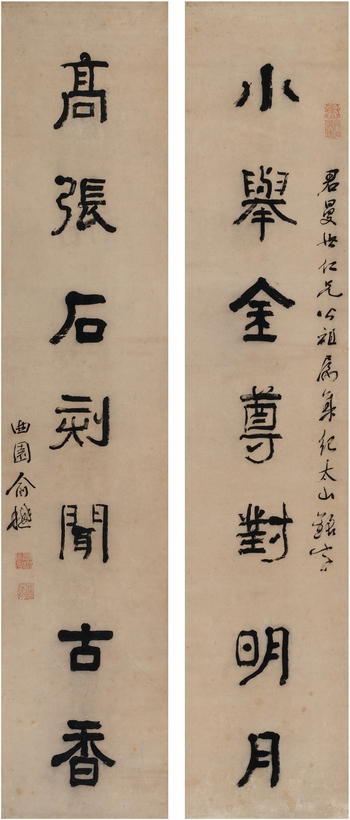 小舉金尊對明月
君曼世仁兄公祖属集紀太山銘字
高張石刻聞古香
曲園俞樾